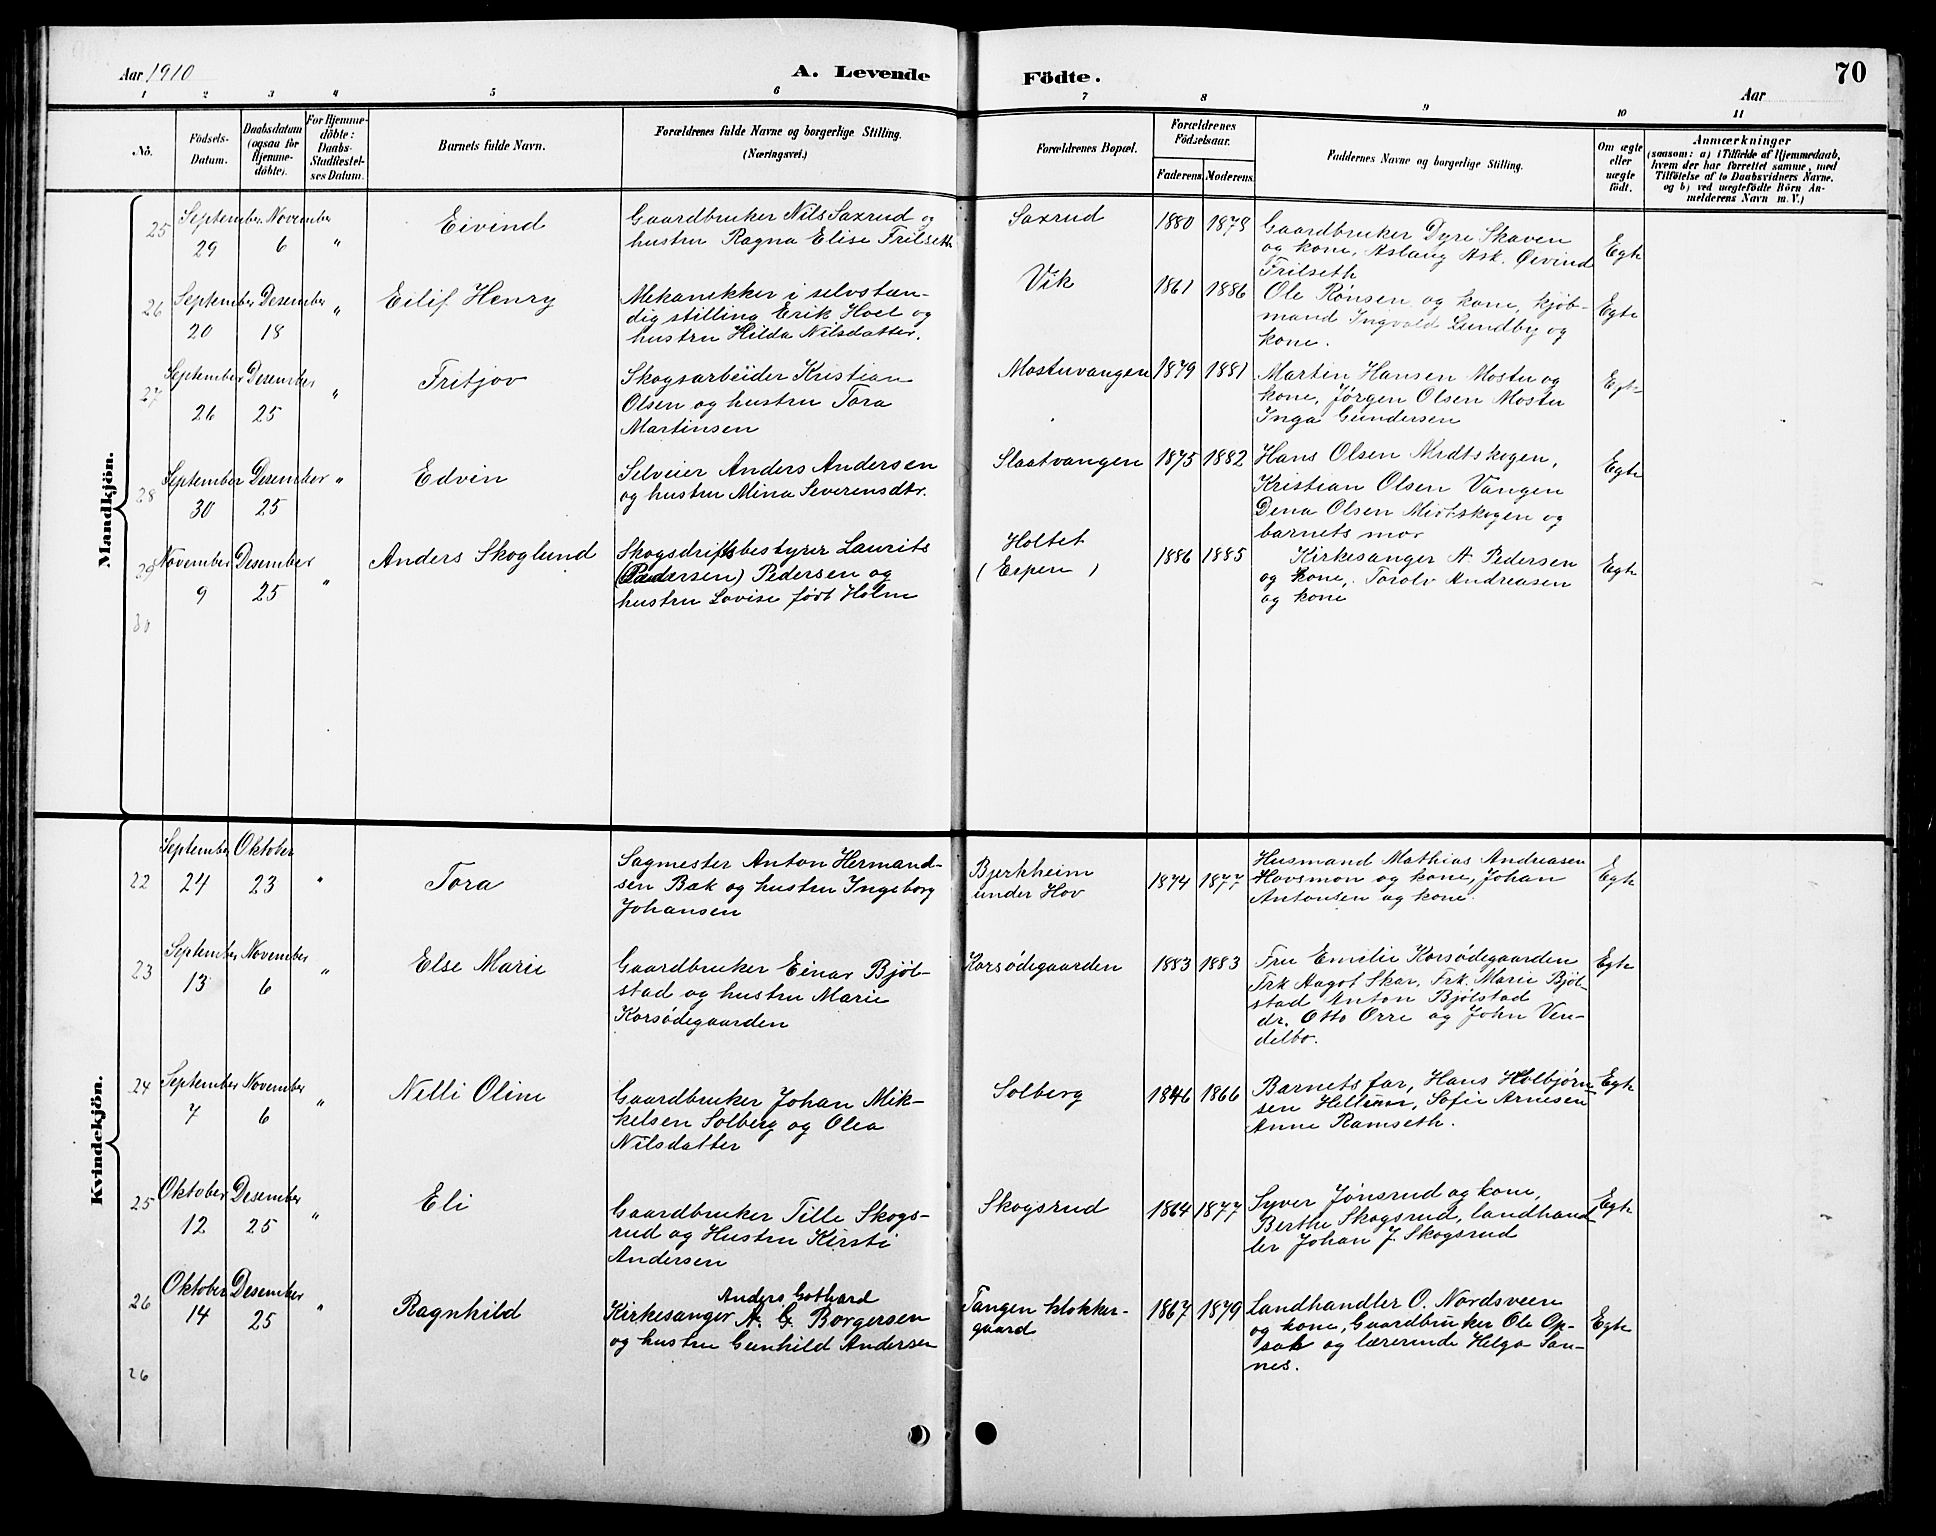 Aar 1910
A. Levende Födte.
70
Aar
1 2 3 4 5 6 7 8 9 10 11
No.
Födsels-
Datum.
Daabsdatum
(ogsaa for
Hjemme-
döbte).
For Hjemme-
döbte:
Daabs-
Stadfæstel-
ses Datum.
Barnets fulde Navn.
Forældrenes fulde Navne og borgerlige Stilling.
(Næringsvei.)
Forældrenes Bopæl.
Forældrenes
Födselsaar.
Faderens. Moderens.
Faddernes Navne og borgerlige Stilling.
Om ægte
eller
uægte
födt.
Anmærkninger
(saasom: a) i Tilfælde af Hjemmedaab,
hvem der har forrettet samme, med
Tilföielse af to Daabsvidners Navne.
og b) ved uægtefödte Börn An-
melderens Navn m. V.)
Mandkjön.
25
September
29
November
6
"
Eivind
Gaardbruker Nils Saxrud og
hustru Ragna Elise Frilseth
Saxrud
1880 1878
Gaardbruker Dyre Skaven
og kone, Aslaug Ask. Øivind
Frilseth
Egte
26
September
20
Desember
18
"
Eilif Henry
Mekanikker i selvstæn-
dig stilling Erik Hoel og
hustru Hilda Nilsdatter.
Vik
1861 1886
Ole Rønsen og kone, kjøb-
mand Ingvald Lundby og
kone.
Egte
27
September
26
Desember
25
"
Fritjov
Skogsarbeider Kristian
Olsen og hustru Tora
Martinsen
Mostuvangen
1879 1881
Martin Hansen Mostu og
kone, Jørgen Olsen Mostu
Inga Gundersen
Egte
28
September
30
Desember
25
"
Edvin
Selveier Anders Andersen
og hustru Mina Severensdtr.
Slaatvangen
1875 1882
Hans Olsen Midtskogen,
Kristian Olsen Vangen
Dena Olsen Midtskogen og
barnets mor
Egte
29
November
9
Desember
25
"
Anders Skoglund
Skogsdriftsbestyrer Laurits
(Pedersen) Pedersen og
hustru Lovise født Holm
Holtet
(Espen)
1886 1885
Kirkesanger A. Pedersen
og kone, Torolv Andreasen
og kone
Egte
30
Kvindekjön.
22
September
24
Oktober
23
"
Tora
Sagmester Anton Hermand-
sen Bak og hustru Ingeborg
Johansen
Bjerkheim
under Hov
1874 1877
Husmand Mathias Andreasen
Hovsmon og kone, Johan
Antonsen og kone.
Egte
23
September
13
November
6
"
Else Marie
Gaardbruker Einar Bjøl-
stad og hustru Marie
Korsödegaarden
Korsödegaarden
1883 1883
Fru Emilie Korsödegaarden
Frk Aagot Skar, Frk. Marie Bjøl-
stad Anton Bjølstad
dr. Otto Orre og John Ven-
delbo.
Egte
24
September
7
November
6
"
Nelli Oline
Gaardbruker Johan Mik-
kelsen Solberg og Olea
Nilsdatter
Solberg
1846 1866
Barnets far, Hans Holbjørn-
sen Hellum, Sofie Arnesen
Anne Ramseth.
Egte
25
Oktober
12
Desember
25
"
Eli
Gaardbruker Tille Skogs-
rud og Hustru Kirsti
Andersen
Skogsrud
1864 1877
Syver Jønsrud og kone,
Berthe Skogsrud, landhand-
ler Johan J. Skogsrud
Egte
26
Oktober
14
Desember
25
"
Ragnhild
Anders Gothard
Kirkesanger A. G. Borgersen
og hustru Gunhild Andersen
Tangen klokker-
gaard
1867 1879
Landhandler O. Nordsveen
og kone, Gaardbruker Ole Op-
sak og lærerinde Helga San-
nes.
Egte
26